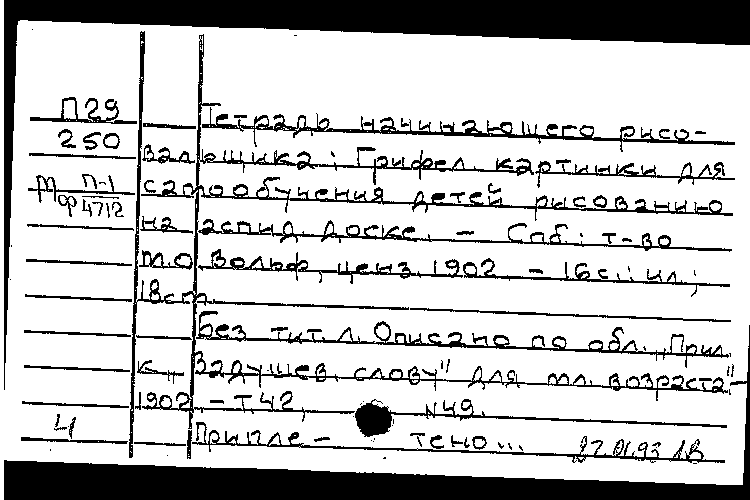 П29
250
П-1
ФР 4712
Тетрадь начинающего рисо-
вальщика: Грифел. картинки для
самообучения детей рисованию
на аспид. доске. – Спб.: т-во
М.О. Вольф, ценз. 1902. – 16с.: ил.;
18см.
Без тит. л. Описано по обл. „Прил.
к „Задушев. слову" для мл. возраста" –
1902. – Т.42, №49.
4
Припле- тено... 27.01.93